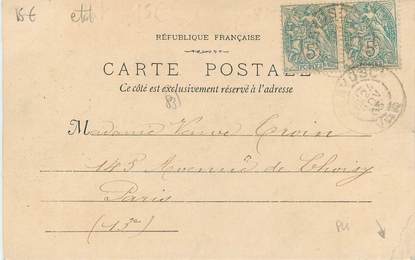 15€
etat
15€
RÉPUBLIQUE FRANÇAISE
CARTE POSTALE
Ce côté est exclusivement réservé à l'adresse
83
Madame Veuve Croin
145 Avenue de Choisy
Paris
(13e)
5
5